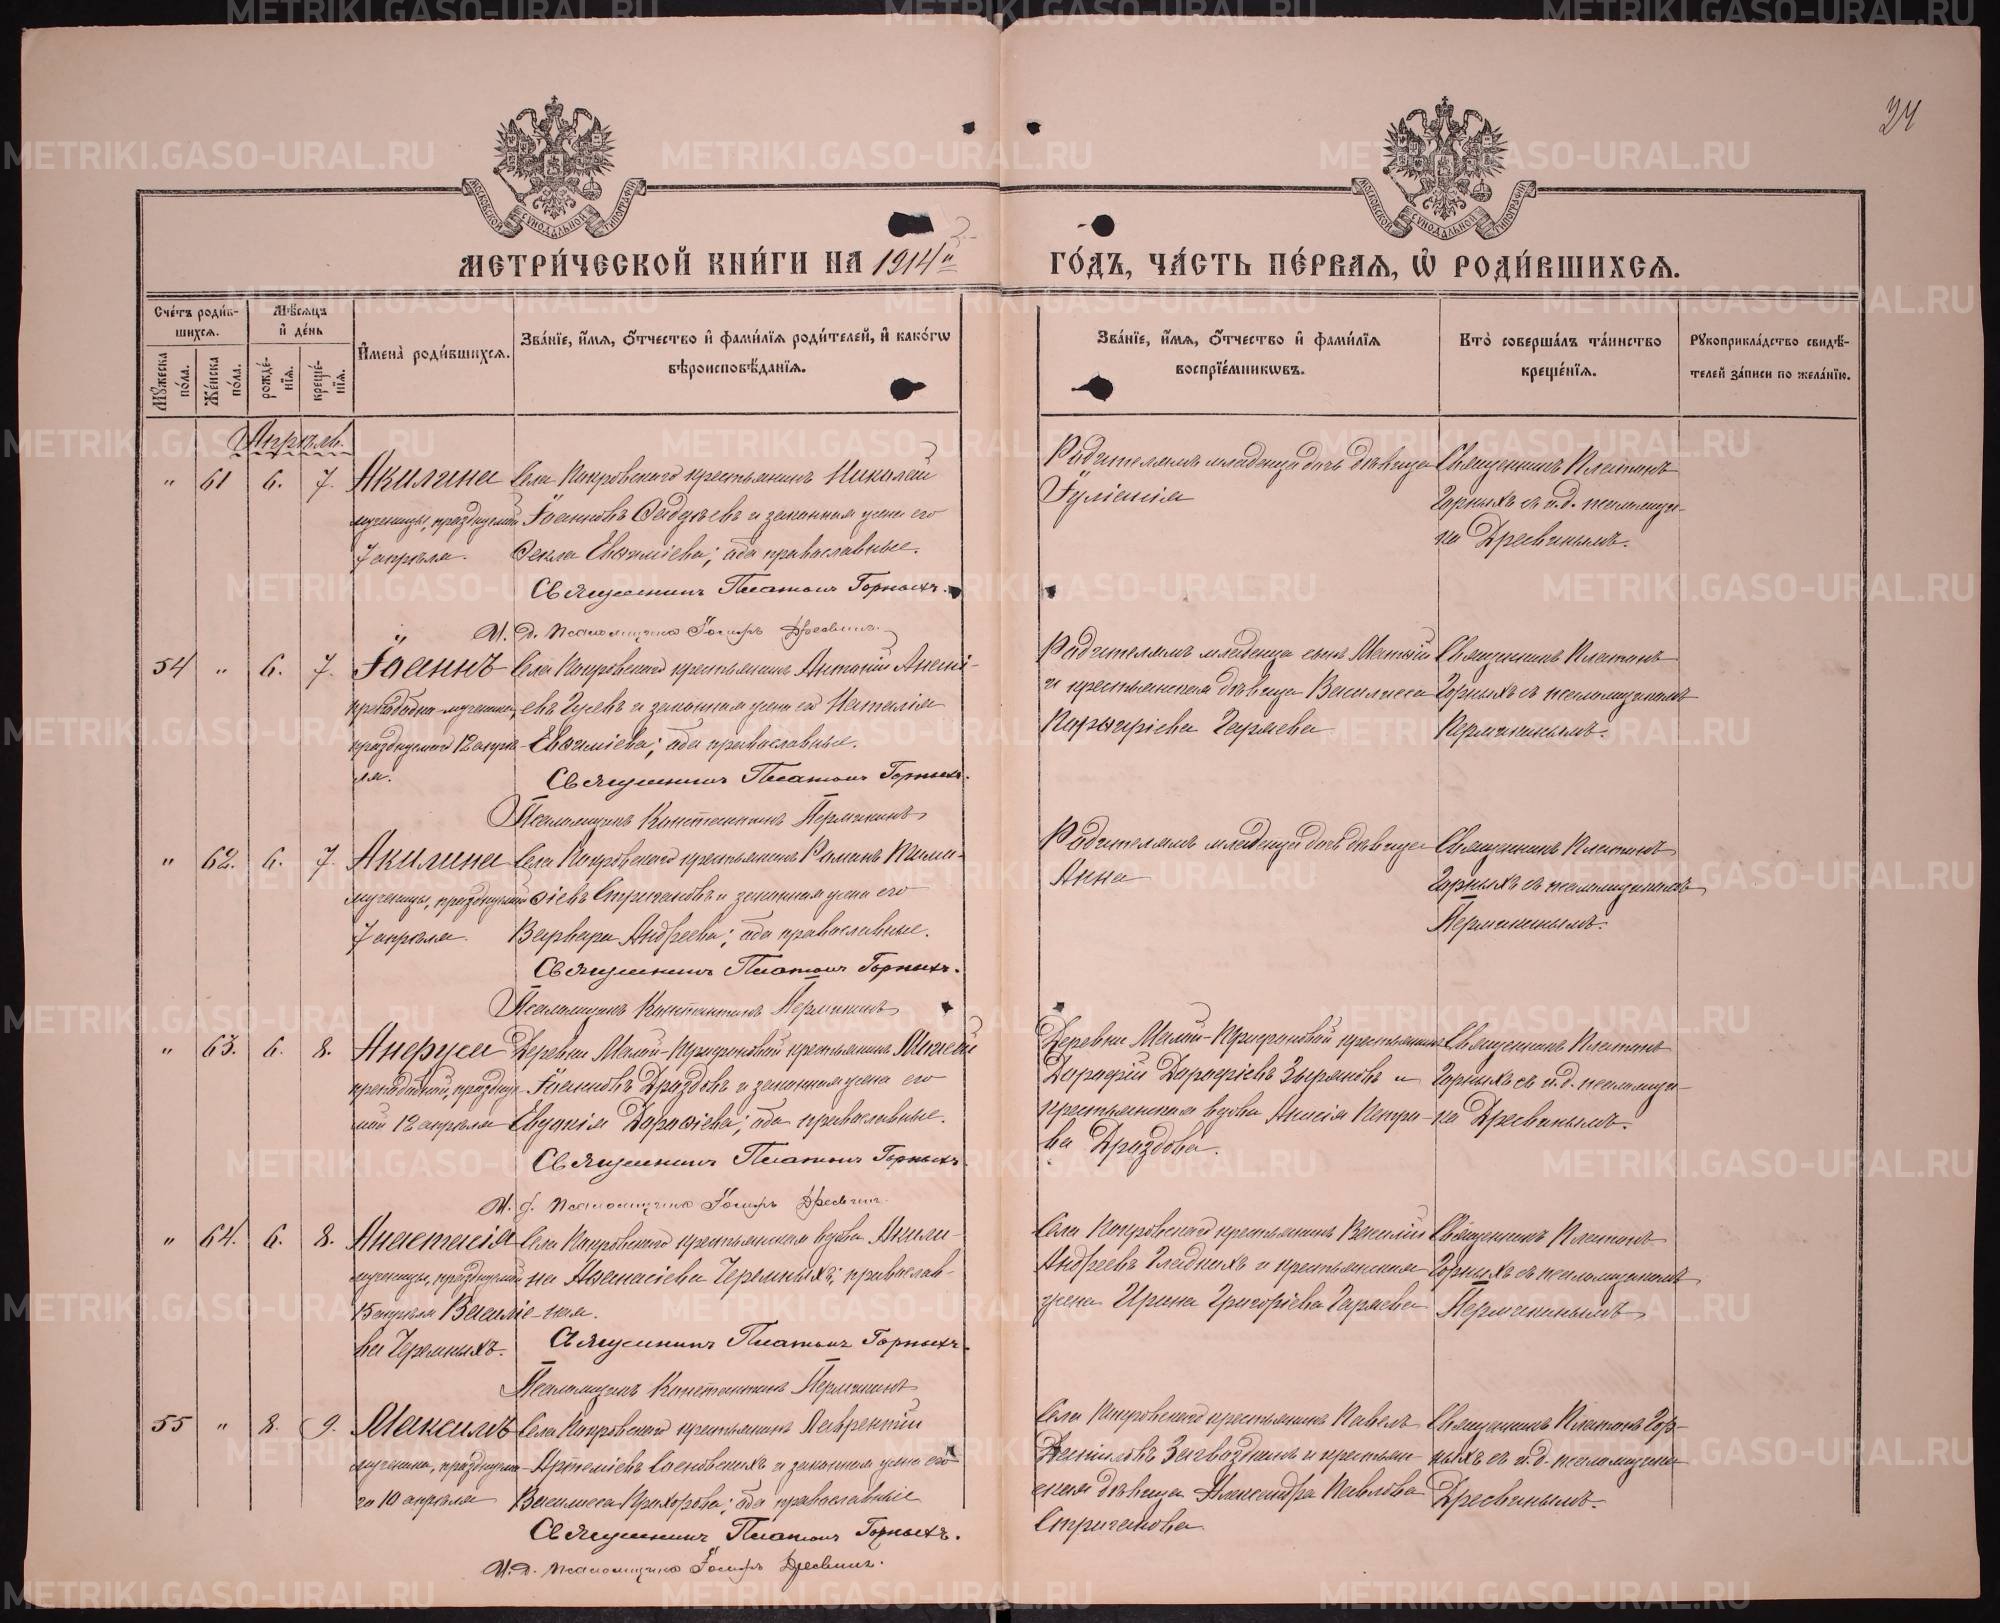 24
МОСКОВСКОЙ СѴНОДАЛЬНОЙ ТИПОГРАФІИ
МОСКОВСКОЙ СѴНОДАЛЬНОЙ ТИПОГРАФІИ
МЕТРИ́ЧЕСКОЙ КНИ́ГИ НА 1914й
ГО́ДЪ, ЧА́СТЬ ПЕ́РВАЯ, Ѡ РОДИ́ВШИХСЯ.
Сче́тъ роди́в-
шихся.
Мꙋ́жеска по́ла.
Же́нска по́ла.
Мѣ́сяцъ
и҆ де́нь
рожде́-
нїя.
креще́-
нїя.
И҆мена̀ роди́вшихся.
Зва́нїе, и҆́мя, ѻ҆́тчество и҆ фами́лїя роди́телей, и҆ како́гѡ
вѣроисповѣ́данїя.
Зва́нїе, и҆́мя, ѻ҆́тчество и҆ фами́лїя
воспрїе́мникѡвъ.
Кто̀ соверша́лъ та́инство
креще́нїя.
Рꙋкоприкла́дство свидѣ́-
телей за́писи по жела́нїю.
Апрѣль.
" 61 6. 7. Акилина
мученицы, празднуемой
7 апрѣля.
Села Покровскаго крестьянинъ Николай
Іоанновъ и законная жена его
Ѳекла Евѳиміева; оба православные.
Священникъ Платонъ Горныхъ.
И. д. псаломщика Дресвинъ.
Родителямъ младенца дочь дѣвица
Іуліанія
Священникъ Платонъ
Горныхъ съ и. д. псаломщи-
ка Дресвинымъ.
54 " 6. 7. Іоаннъ
преподобно-мученика,
празднуемаго 12 апрѣ-
ля.
Села Покровскаго крестьянинъ Антоній Анани-
евъ Гусевъ и законная жена его Наталія
Евѳиміева; оба православные.
Священникъ Платонъ Горныхъ.
Псаломщикъ Константинъ Пермикинъ
Родителямъ младенца сынъ
и крестьянская дѣвица Василисса
Порфиріева Гаряева
Священникъ Платонъ
Горныхъ съ псаломщикомъ
Пермикинымъ.
" 62. 6. 7. Акилина
мученицы, празднуемой
7 апрѣля.
Села Покровскаго крестьянинъ Романъ Тимо-
ѳіевъ Стригановъ и законная жена его
Варвара Андреева; оба православные.
Священникъ Платонъ Горныхъ.
Псаломщикъ Константинъ Пермикинъ
Родителямъ младенца дочь дѣвица
Анна
Священникъ Платонъ
Горныхъ съ псаломщикомъ
Пермикинымъ.
" 63. 6. 8. Анѳуса
преподобной, праздну-
мой 12 апрѣля
Деревни Малой-Трифоновой крестьянинъ
Іоанновъ Дроздовъ и законная жена его
Евдокія Дороѳіева; оба православные.
Священникъ Платонъ Горныхъ.
И. д. псаломщика Дресвинъ.
Деревни Малой-Трифоновой крестьянинъ
Дорофій Дорофіевъ Зыряновъ и
крестьянская вдова Анисія Петро-
ва Дроздова.
Священникъ Платонъ
Горныхъ съ и. д. псаломщи-
ка Дресвинымъ.
" 64. 6. 8. Анастасія
мученицы, празднуемой
15 апрѣля Василіе-
ва Черемныхъ.
Села Покровскаго крестьянская вдова Акили-
на Аѳанасіева Черемныхъ; православ-
ная.
Священникъ Платонъ Горныхъ.
Псаломщикъ Константинъ Пермикинъ
Села Покровскаго крестьянинъ Василій
Андреевъ Гладкихъ и крестьянская
жена Ирина Григоріева Гаряева
Священникъ Платонъ
Горныхъ съ псаломщикомъ
Пермикинымъ
55 " 8. 9. Максимъ
мученика, празднуема-
го 10 апрѣля
Села Покровскаго крестьянинъ Лаврентій
Артеміевъ Сосновскихъ и законная жена его
Василисса Прохорова; оба православные
Священникъ Платонъ Горныхъ.
И. д. псаломщика Дресвинъ.
Села Покровскаго крестьянинъ Павелъ
Даниловъ Загвоздкинъ и крестьян-
ская дѣвица Александра Павлова
Стриганова.
Священникъ Платонъ Гор-
ныхъ съ и. д. псаломщика
Дресвинымъ.
METRIKI.GASO-URAL.RU